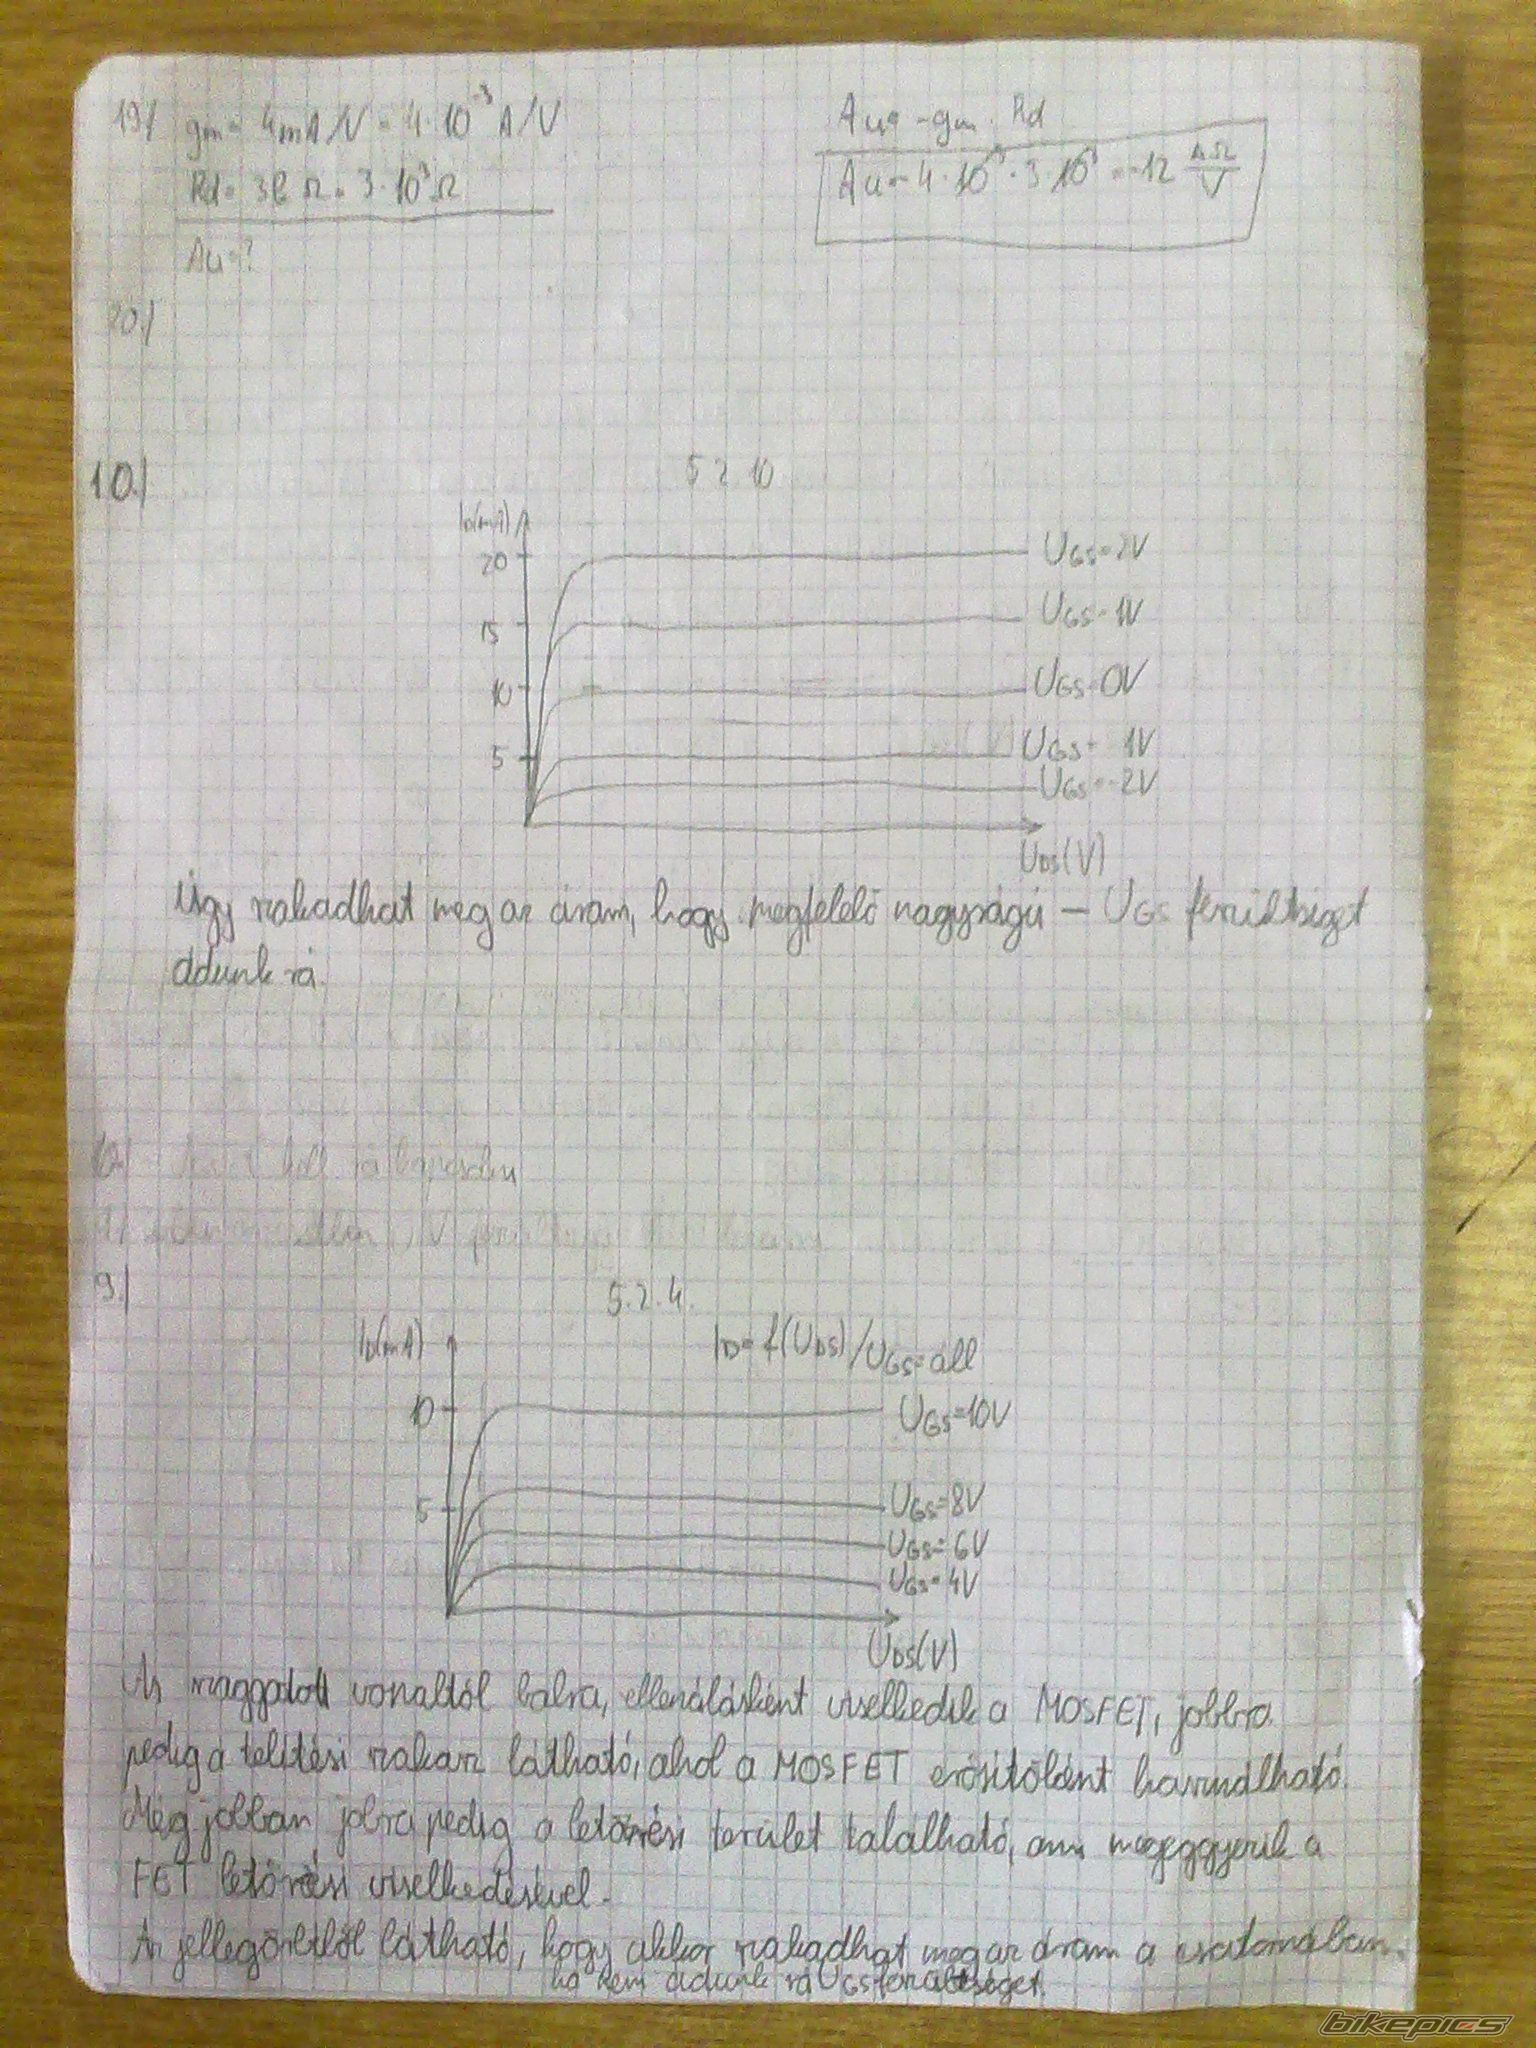 19./ gm = 4mA/V = 4·10⁻³ A/V
Rd = 3k Ω = 3·10³ Ω
Au = ?
Au = -gm · Rd
Au = -4·10⁻³·3·10³ = -12 AΩ/V
20./
10./
5.2.10
ID(mA)
20
15
10
5
UGS=2V
UGS=1V
UGS=0V
UGS=-1V
UGS=-2V
UDS(V)
Úgy szakadhat meg az áram, hogy megfelelő nagyságú – UGS feszültséget
adunk rá.
kell rá kapcsolni
9./
5.2.4.
ID(mA)
ID=f(UDS)/UGS=áll
10
5
UGS=10V
UGS=8V
UGS=6V
UGS=4V
UDS(V)
As szaggatott vonaltól balra, ellenálásként viselkedik a MOSFET, jobbra
pedig a telítési szakasz látható, ahol a MOSFET erősítőként használható.
Még jobban jobra pedig a letörési terület található, ami megeggyezik a
FET letörési viselkedésével.
Az jellegörbéből látható, hogy akkor szakadhat meg az áram a csatornában,
ha nem adunk rá UGS feszültséget.
bikepics